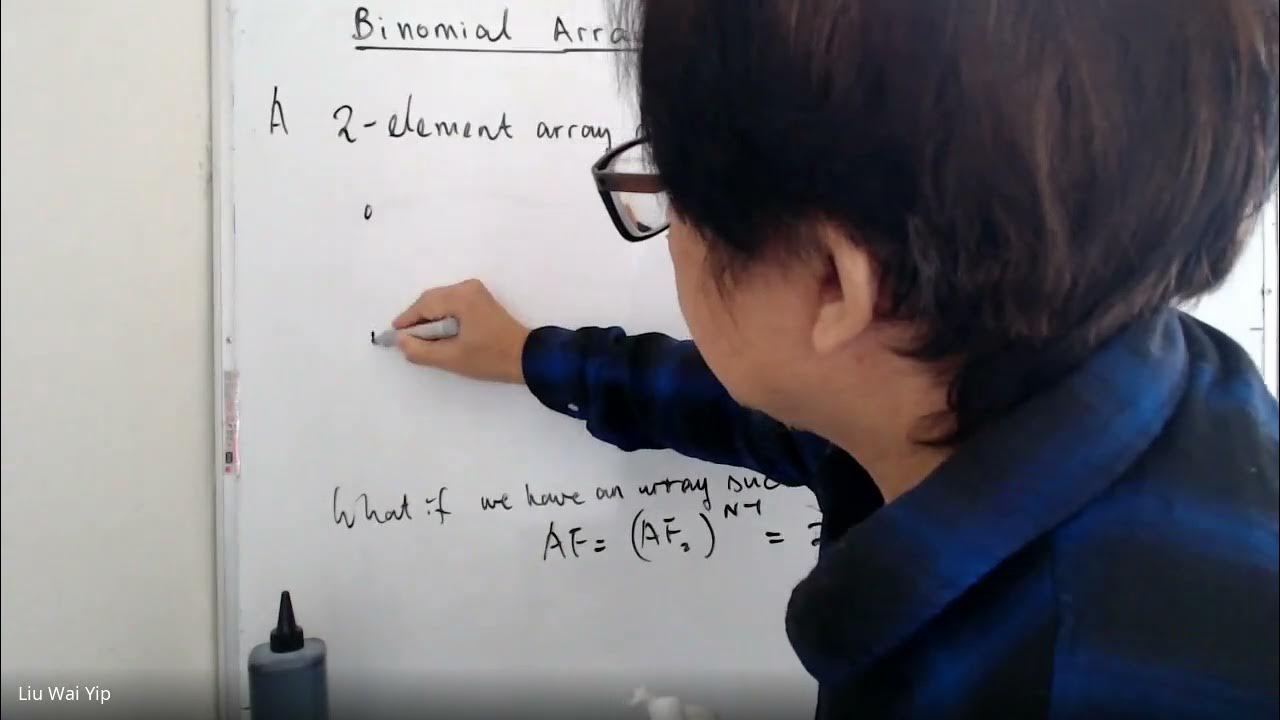 Binomial Arra
A 2-element array
0
What if we have an array suc
AF = (AF₂)ᴺ⁻¹ = 2
Liu Wai Yip